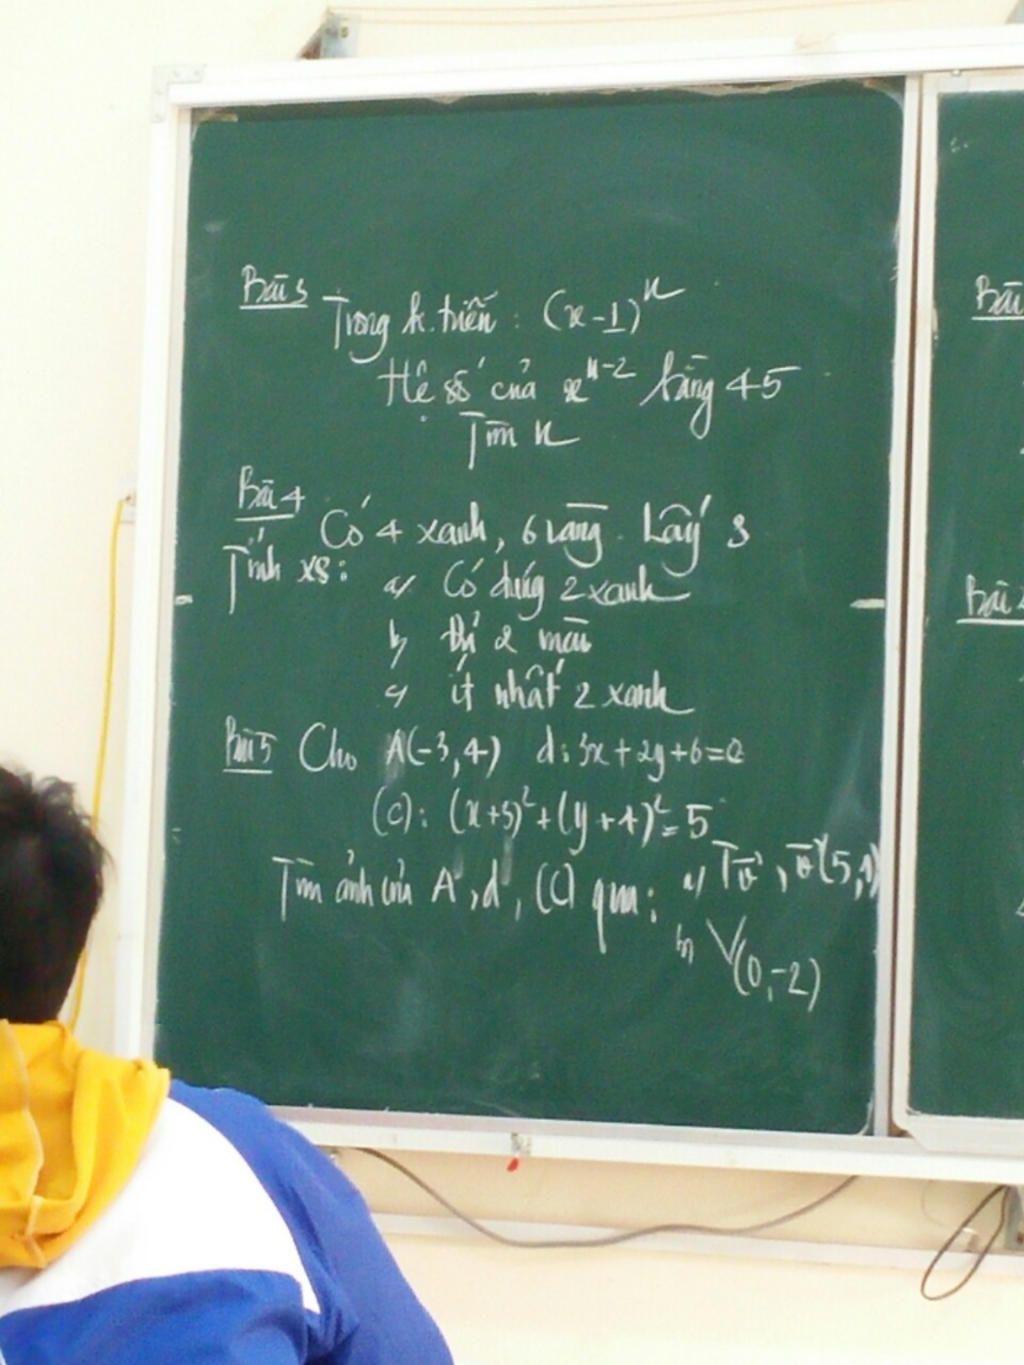 Bài 3 Trong k. triển: (x-1)ⁿ
Hệ số của xⁿ⁻² bằng 45
Tìm n
Bài 4 Có 4 xanh, 6 vàng. Lấy 3
Tính xs: a/ Có đúng 2 xanh
b/ Đủ 2 màu
c/ ít nhất 2 xanh
Bài 5 Cho A(-3,4) d: 3x+2y+6=0
(C): (x+3)²+(y+4)²=5
Tìm ảnh của A, d, (C) qua: a/
b/ V(0,-2)
Bài
Bài